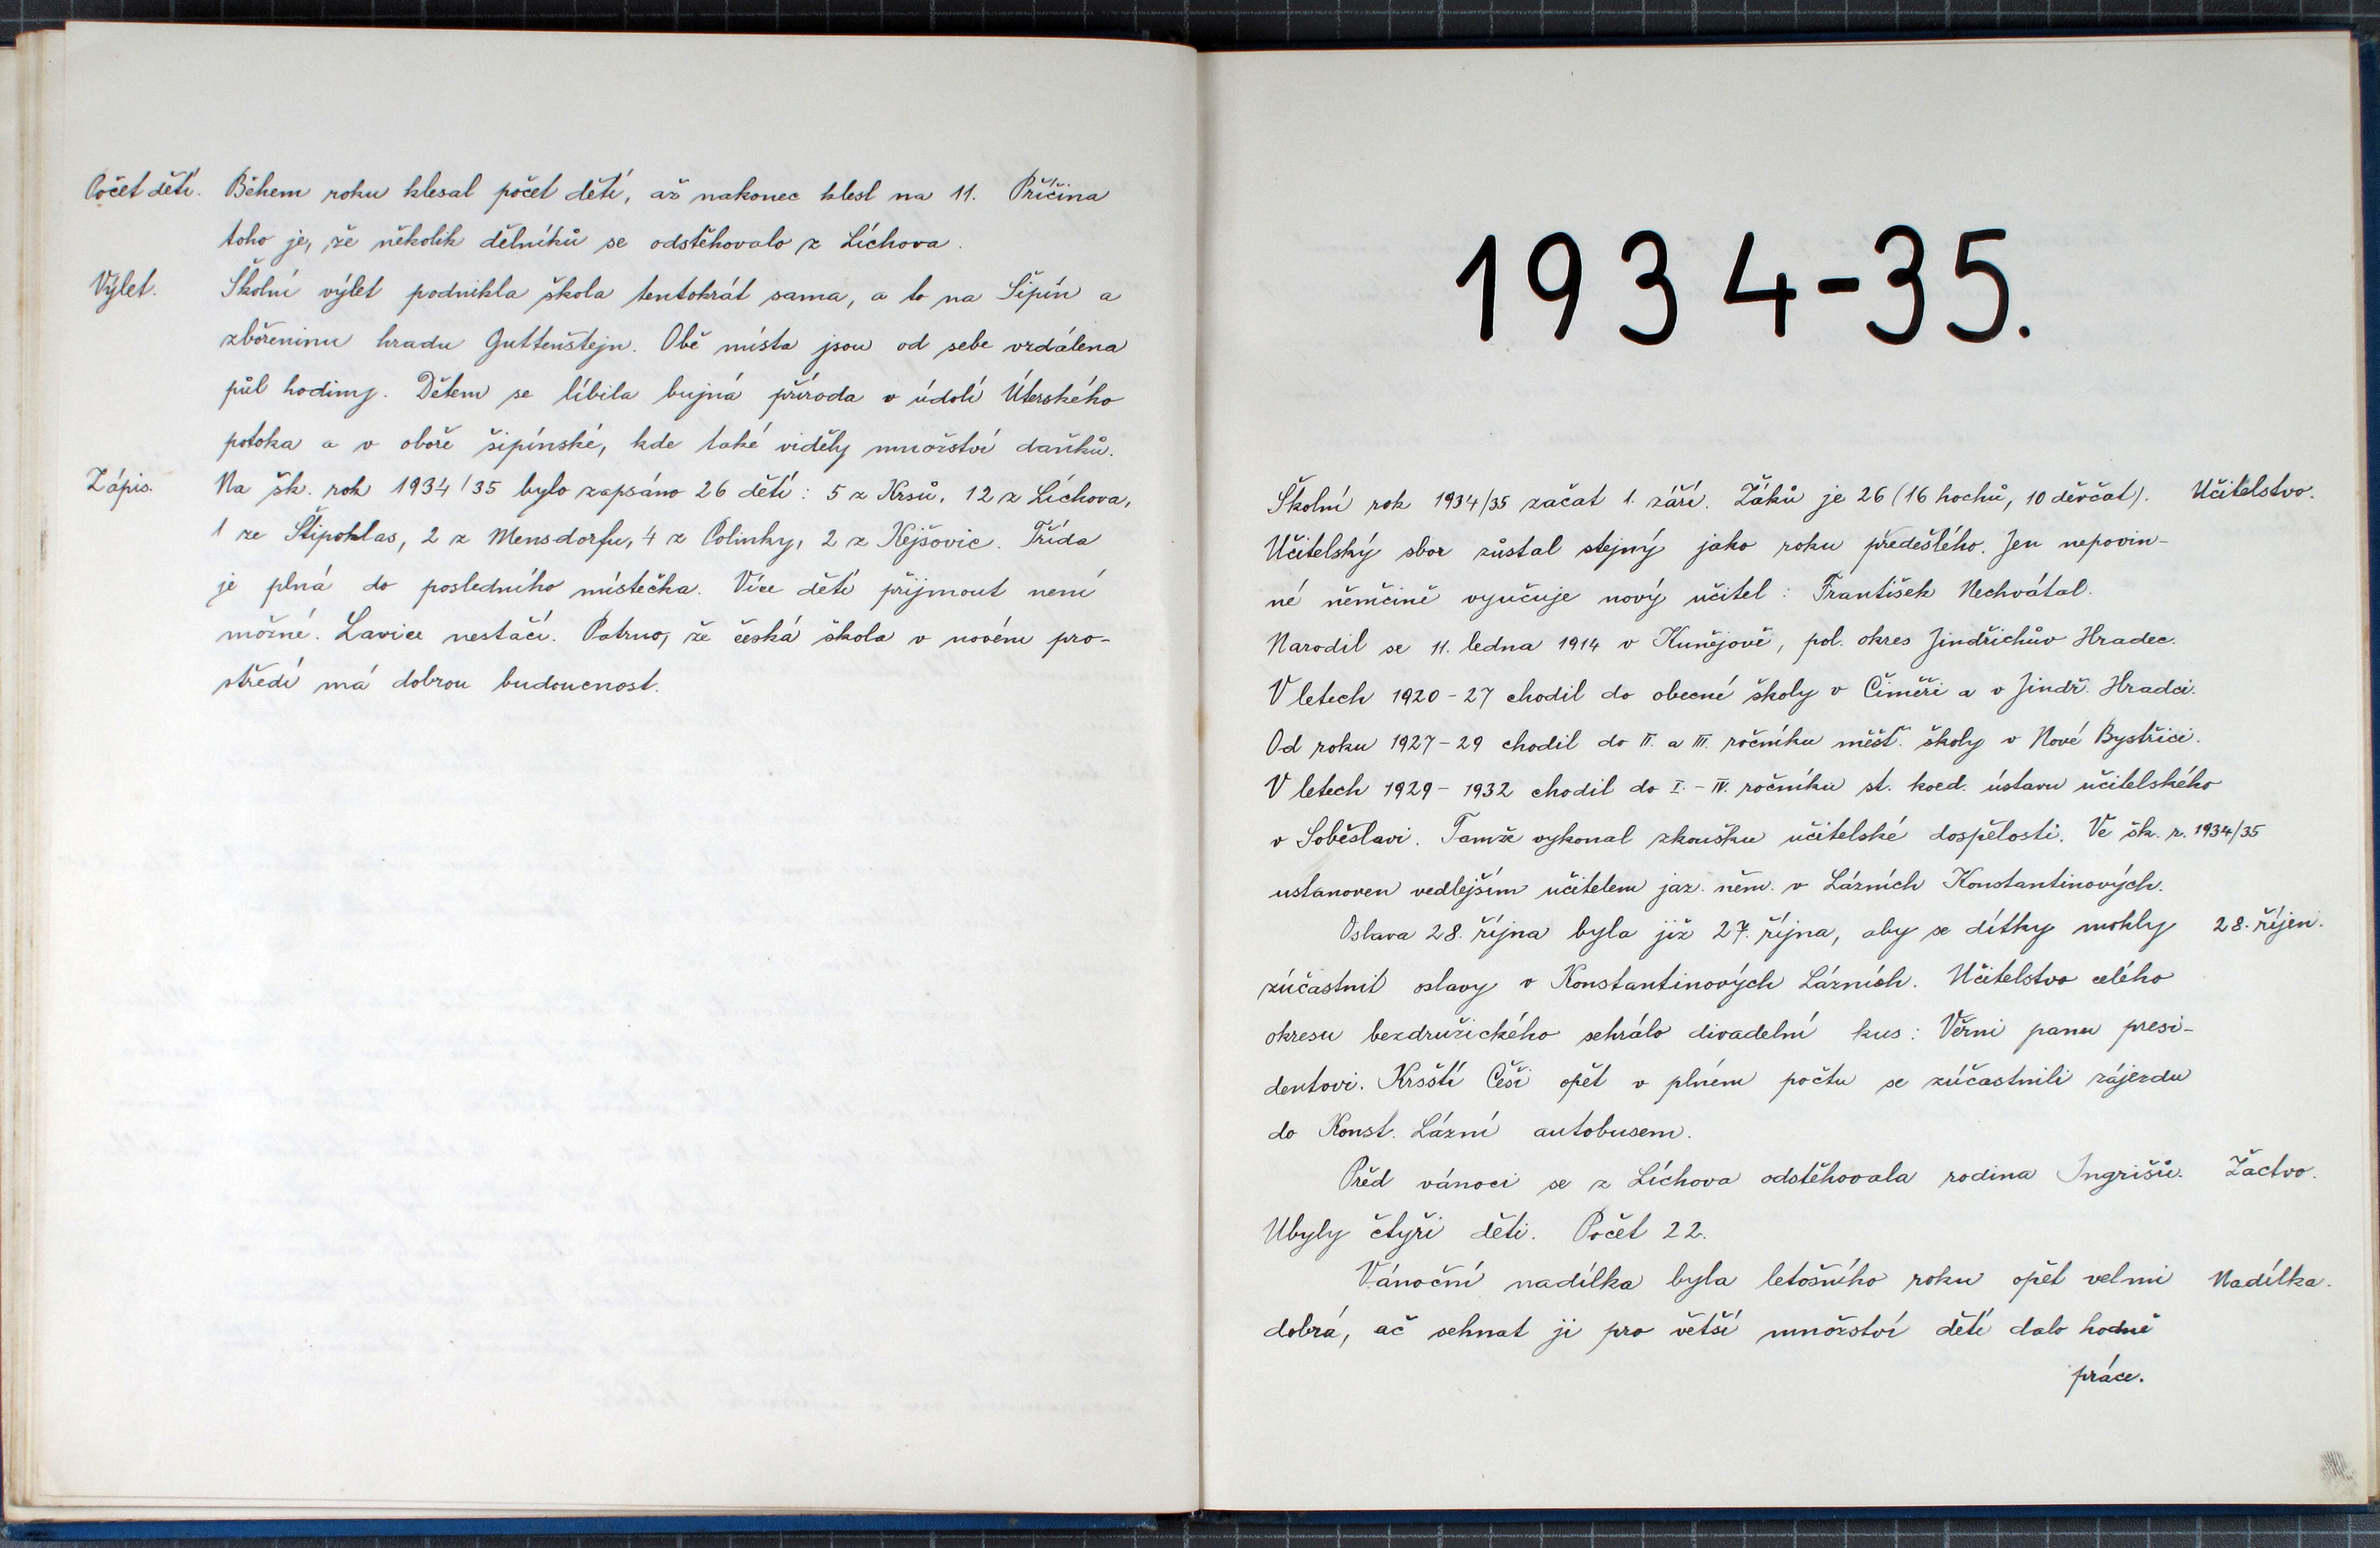 Počet dětí. Během roku klesal počet dětí, až nakonec klesl na 11. Příčina
toho je, že několik dělníků se odstěhovalo z Líchova.
Výlet. Školní výlet podnikla škola tentokrát sama, a to na Šipín a
zbořeninu hradu Guttenštejn. Obě místa jsou od sebe vzdálena
půl hodiny. Dětem se líbila bujná příroda v údolí Úterského
potoka a v oboře šipínské, kde také viděly množství daňků.
Zápis. Na šk. rok 1934/35 bylo zapsáno 26 dětí: 5 z Krsů, 12 z Líchova,
1 ze Štipoklas, 2 z Mensdorfu, 4 z Polinky, 2 z Kejšovic. Třída
je plná do posledního místečka. Více dětí přijmout není
možné. Lavice nestačí. Patrno, že česká škola v novém pro-
středí má dobrou budoucnost.
1934-35.
Školní rok 1934/35 začat 1. září. Žáků je 26 (16 hochů, 10 děvčat). Učitelstvo.
Učitelský sbor zůstal stejný jako roku předešlého. Jen nepovin-
né němčině vyučuje nový učitel: František Nechvátal.
Narodil se 11. ledna 1914 v Kunějově, pol. okres Jindřichův Hradec.
V letech 1920-27 chodil do obecné školy v Číměři a v Jindř. Hradci.
Od roku 1927-29 chodil do II. a III. ročníku měšť. školy v Nové Bystřici.
V letech 1929-1932 chodil do I.-IV. ročníku st. koed. ústavu učitelského
v Soběslavi. Tamže vykonal zkoušku učitelské dospělosti. Ve šk. r. 1934/35
ustanoven vedlejším učitelem jaz. něm. v Lázních Konstantinových.
Oslava 28. října byla již 27. října, aby se dítky mohly 28. říjen.
zúčastnit oslavy v Konstantinových Lázních. Učitelstvo celého
okresu bezdružického sehrálo divadelní kus: Věrni panu presi-
dentovi. Krsští Češi opět v plném počtu se zúčastnili zájezdu
do Konst. Lázní autobusem.
Před vánoci se z Líchova odstěhovala rodina Ingrišů. Žactvo.
Ubyly čtyři děti. Počet 22.
Vánoční nadílka byla letošního roku opět velmi Nadílka.
dobrá, ač sehnat ji pro větší množství dětí dalo hodně
práce.